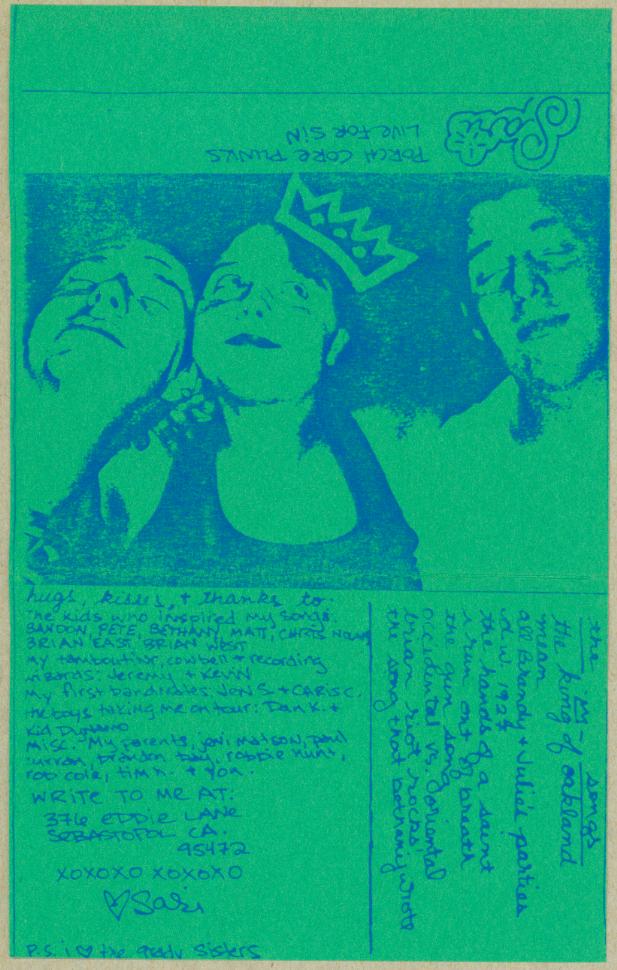 Sari
PORCH CORE PUNKS
LIVE FOR SIN
hugs, kisses, + thanks to:
The kids who inspired my songs:
BANDON, PETE, BETHANY, MATT, CHRIS
BRIAN EAST, BRIAN WEST
my tambourine, cowbell + recording
wizards: Jeremy + KEVIN
My first bandmates: JEN S. + CARIS C.
the boys taking me on tour: Dan K. +
Kid Dynamo
Misc.: My parents, joni matson, paul
curran, brandon bay, robbie hunt,
rob cole, tim n. + you.
WRITE TO ME AT:
376 EDDIE LANE
SEBASTOPOL CA.
95472
XOXOXO XOXOXO
♡ Sari
P.S. i ♡ the Sisters
the songs
the king of oakland
mean
all Brandy + Julie's parties
d.w. 1924
the hands of a saint
i run out of breath
the gun song
occidental vs. oriental
brian riot rocks
the song that bethany wrote